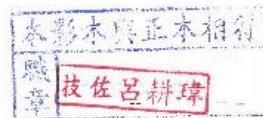 本影本與正本相符
職章
技佐呂耕瑋